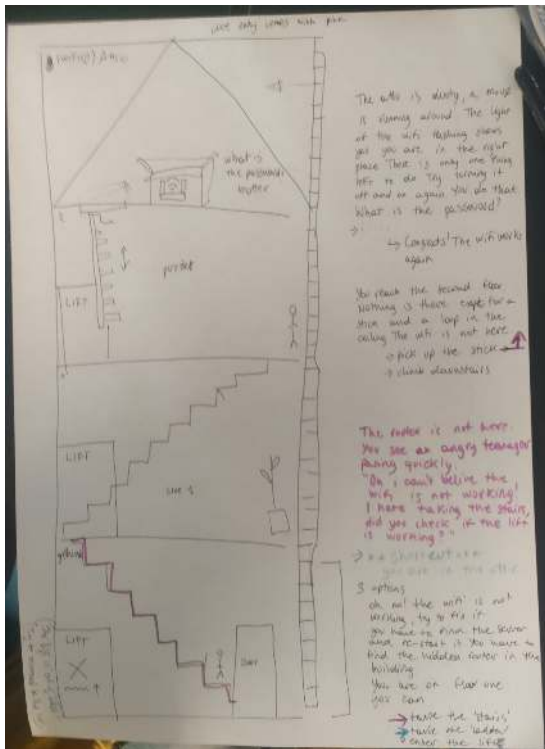 The attic is dusty, a mouse
is running around. The light
of the wifi flashing shows
you you are in the right
place There is only one thing
left to do Try turning it
off and on again You do that
What is the password?
what is
the password
router
↳ Congrats! The wifi works
again
LIFT
You reach the second floor
Nothing is there except for a
stick and a loop in the
ceiling The wifi is not here
→ pick up the stick →
→ climb downstairs
LIFT
The router is not here
You see an angry teenager
passing quickly.
wifi is not working!
I hate taking the stairs,
did you check if the lift
is working?"
LIFT
3 options
oh no! the wifi is not
working, try to fix it
you have to find the server
and re-start it You have to
find the hidden router in the
building
You are at floor one
you can
→ take the 'stairs'
→ take the 'ladder'
enter the lift